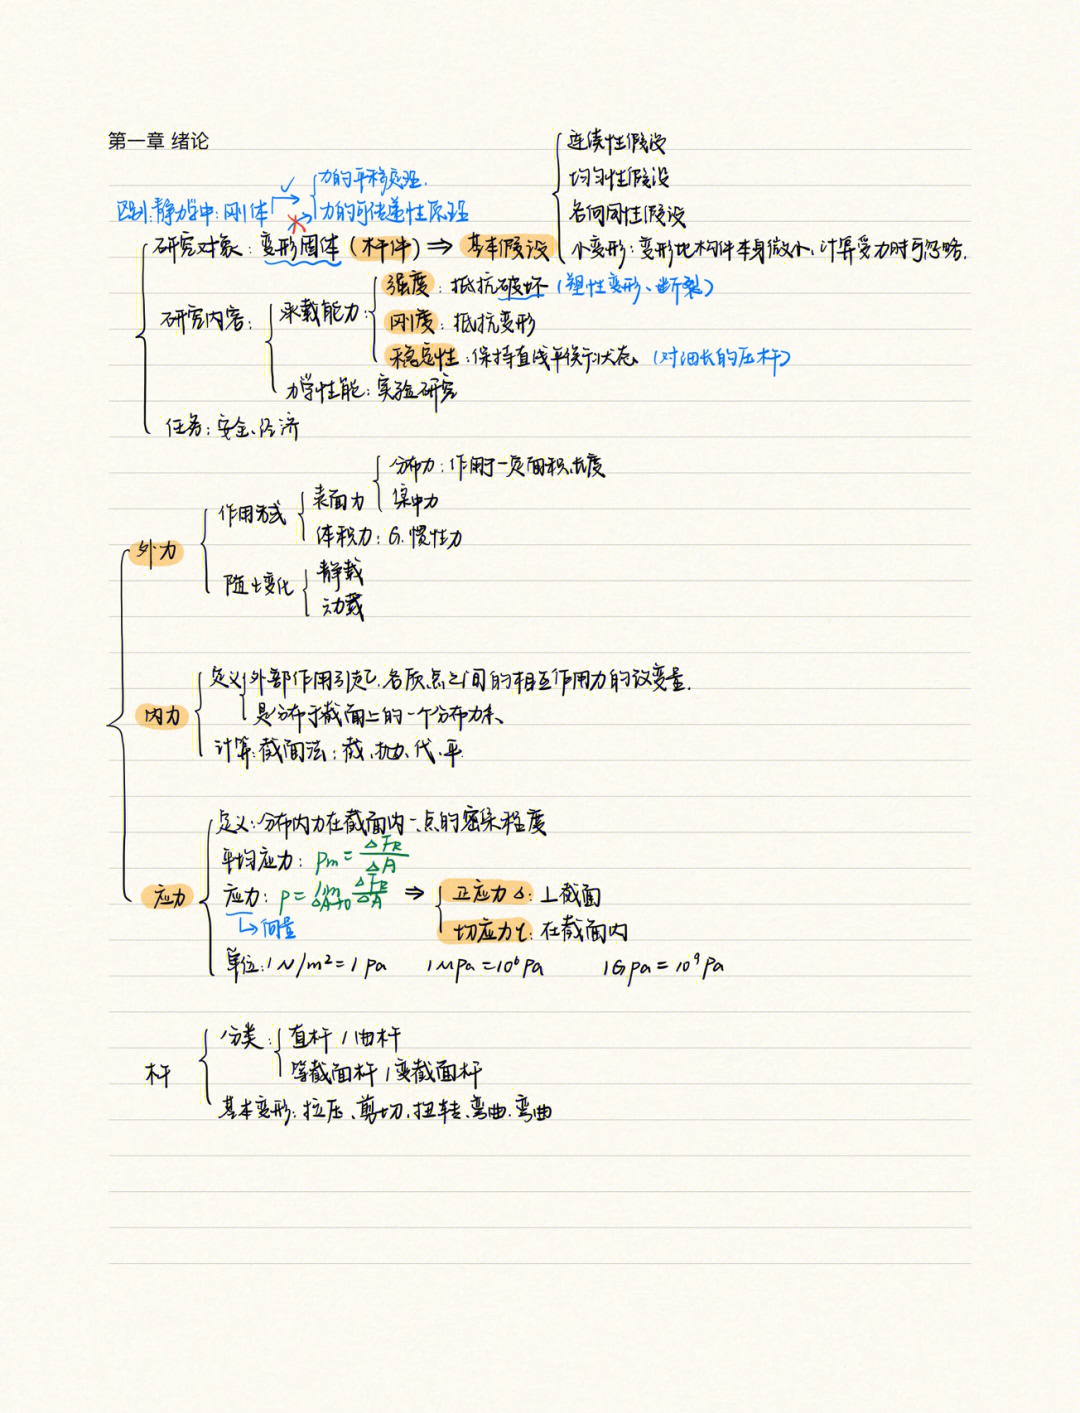 第一章 绪论
连续性假设
均匀性假设
各向同性假设
小变形：变形比构件本身微小、计算受力时可忽略.
力的平移定理.
区别:静力学中:刚体
力的可传递性原理
研究对象：变形固体（杆件）⇒ 基本假设
研究内容：
承载能力：
强度：抵抗破坏（塑性变形、断裂）
刚度：抵抗变形
稳定性：保持直线平衡状态（对细长的压杆）
力学性能：实验研究
任务：安全、经济
外力
作用方式
表面力
分布力：作用于一定面积、长度
集中力
体积力：G、惯性力
随t变化
静载
动载
内力
定义
外部作用引起、各质点之间的相互作用力的改变量.
是分布于截面上的一个分布力系、
计算:截面法：截、抛、代、平
应力
定义：分布内力在截面内一点的密集程度
平均应力：pm = ΔFR/ΔA
应力：p = lim ΔA→0 ΔFR/ΔA ⇒
正应力σ：⊥截面
切应力τ：在截面内
↳向量
单位:1N/m²=1pa 1Mpa=10⁶pa 1Gpa=10⁹pa
杆
分类：
直杆/曲杆
等截面杆/变截面杆
基本变形：拉压、剪切、扭转、弯曲、弯曲